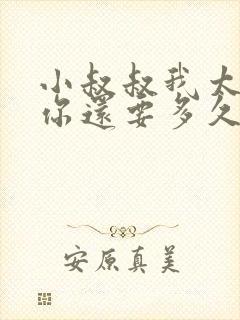 小叔叔我大
你還要多久
安原真美